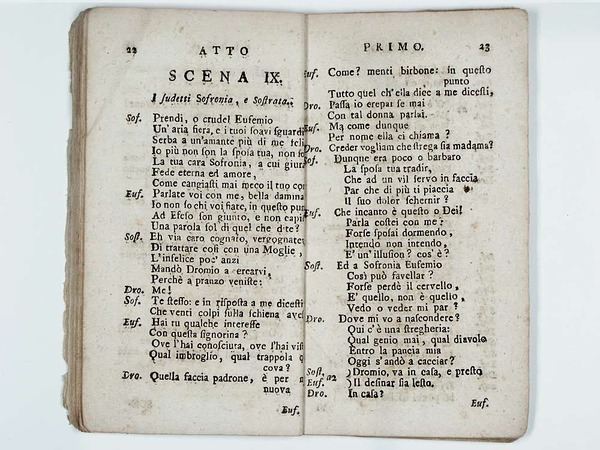 22 ATTO
SCENA IX.
I sudetti Sofronia, e Sostrata.
Sof. Prendi, o crudel Eufemio
Un'aria fiera, e i tuoi soavi sguardi
Serba a un'amante più di me
Io più non son la sposa tua, non
La tua cara Sofronia, a cui
Fede eterna ed amore,
Come cangiasti mai meco il tuo
Euf. Parlate voi con me, bella damina
Io non so chi voi siate, in questo
Ad Efeso son giunto, e non
Una parola sol di quel che dite?
Sost. Eh via caro cognato, vergognatevi
Di trattare così con una Moglie,
L'infelice poc' anzi
Mandò Dromio a cercarvi,
Perchè a pranzo veniste:
Dro. Me!
Sof. Te stesso: e in risposta a me dicesti
Che venti colpi sulla schiena
Euf. Hai tu qualche interesse
Con questa signorina?
Ove l'hai conosciuta, ove l'hai
Qual imbroglio, qual trappola
cova?
Dro. Quella faccia padrone, è per
nuova
Euf.
PRIMO. 23
Euf. Come? menti birbone: in questo
punto
Tutto quel ch'ella dice a me dicesti,
Dro. Passa io crepar se mai
Con tal donna parlai.
Euf. Ma come dunque
Per nome ella ci chiama?
Dro. Creder vogliam che strega sia madama?
Sof. Dunque era poco o barbaro
La sposa tua tradir,
Che ad un vil servo in faccia
Par che di più ti piaccia
Il suo dolor schernir?
Euf. Che incanto è questo o Dei!
Parla costei con me:
Forse sposai dormendo,
Intendo non intendo,
E' un'illusion? cos' è?
Sost. Ed a Sofronia Eufemio
Così può favellar?
Forse perdè il cervello,
E' quello, non è quello,
Vedo o veder mi par?
Dro. Dove mi vo a nascondere?
Qui c'è una stregheria:
Qual genio mai, qual diavolo
Entro la pancia mia
Oggi s'andò a cacciar?
Sost. ) Dromio, va in casa, e presto
Euf. a2 ) Il desinar sia lesto.
Dro. In casa?
Euf.